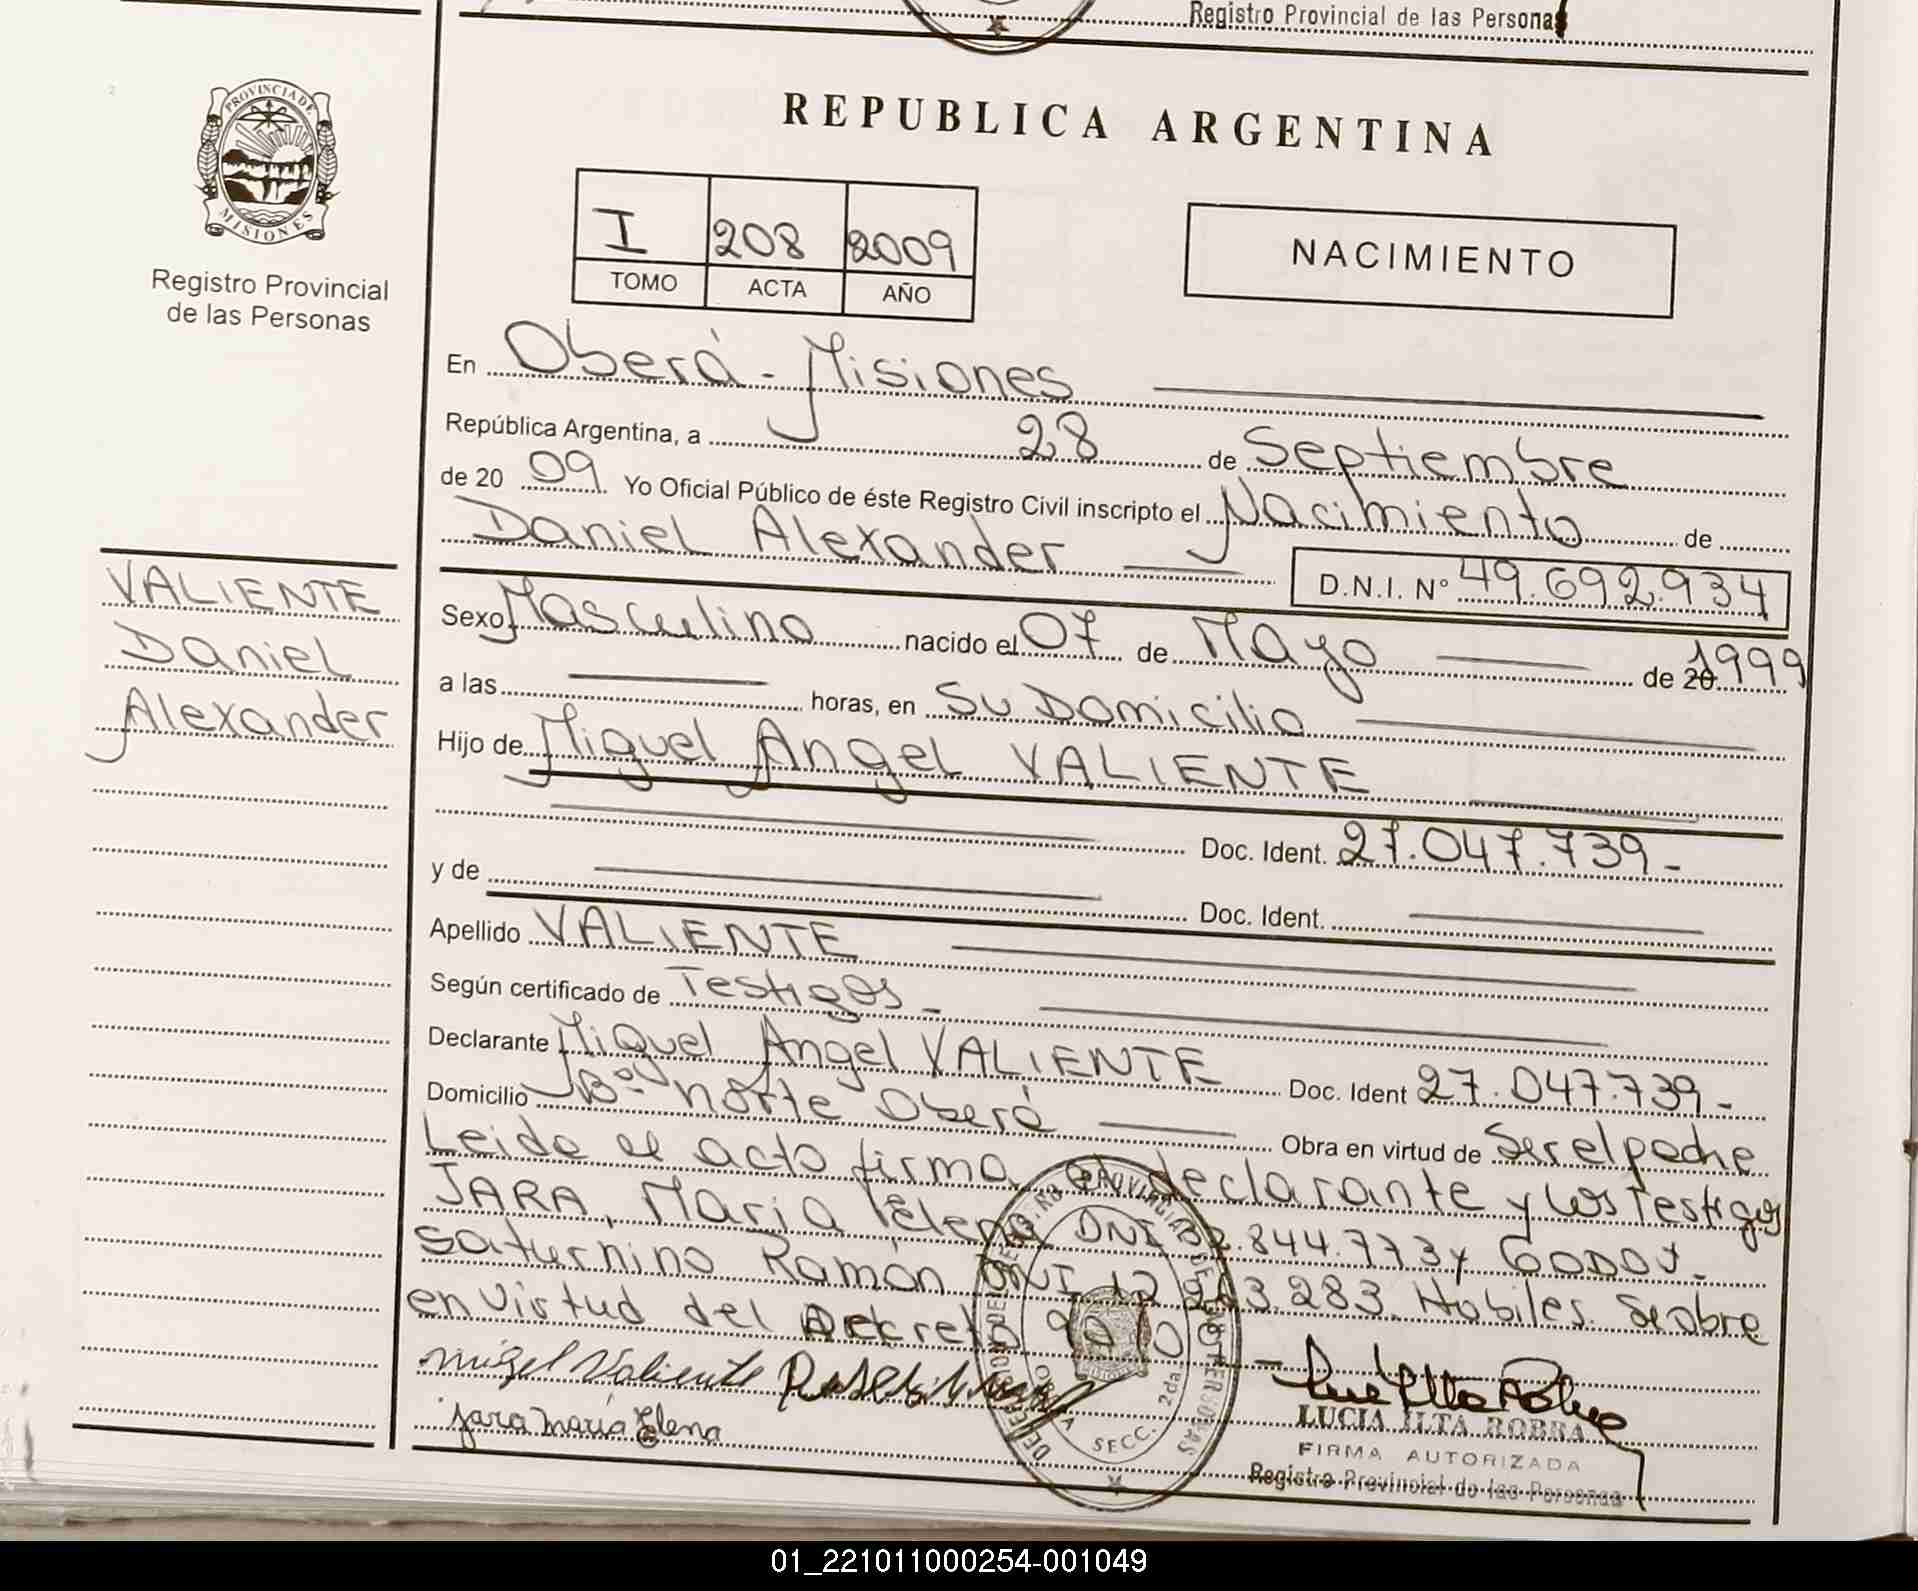 Registro Provincial de las Personas
PROVINCIA DE
MISIONES
Registro Provincial
de las Personas
REPUBLICA ARGENTINA
I 208 2009
TOMO ACTA AÑO
NACIMIENTO
En Oberá - Misiones
República Argentina, a 28 de Septiembre
de 20 09 Yo Oficial Público de éste Registro Civil inscripto el Nacimiento de
Daniel Alexander D.N.I. N° 49.692.934
VALIENTE
Daniel
Alexander
Sexo Masculino nacido el 07 de Mayo de 20 1999
a las horas, en Su Domicilio
Hijo de Miguel Angel VALIENTE
Doc. Ident. 27.047.739-
y de Doc. Ident.
Apellido VALIENTE
Según certificado de Testigos -
Declarante Miguel Angel VALIENTE Doc. Ident 27.047.739-
Domicilio B° norte Oberá Obra en virtud de Ser el padre
Leido el acto firma el declarante y los Testigos
JARA, Maria Elena DNI 32.844.773 y GODOY
Saturnino Ramón DNI 12 3.283. Habiles. Se abre
en virtud del Decreto
Miguel Valiente
Jara María Elena
SECC. 2da.
LUCIA ILTA ROBRA
FIRMA AUTORIZADA
Registro Provincial de las Personas
01_221011000254-001049